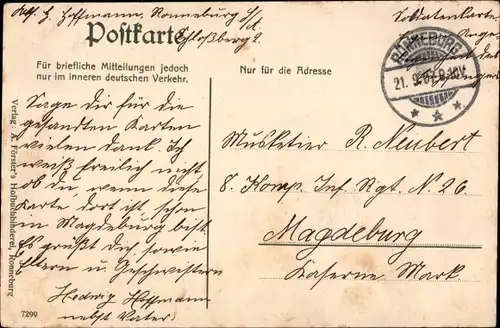 H. Hoffmann, Ronneburg S/A.
Schloßberg 2.
Soldatenkarte
Postkarte
Für briefliche Mitteilungen jedoch
nur im inneren deutschen Verkehr.
Nur für die Adresse
RONNEBURG
21. 9. 07. 9-10V.
Sage dir für die
gesandten Karten
vielen Dank. Ich
weiß freilich nicht,
ob du, wenn diese
Karte dort ist schon
in Magdeburg bist.
Es grüßt dich sowie
Eltern u. Geschwistern
Hedwig Hoffmann
nebst Vater.
Musketier R. Neubert
8. Komp. Inf. Rgt. N. 26.
Magdeburg
Kaserne Mark.
Verlag: A. Förster's Hofbuchbinderei, Ronneburg
7299